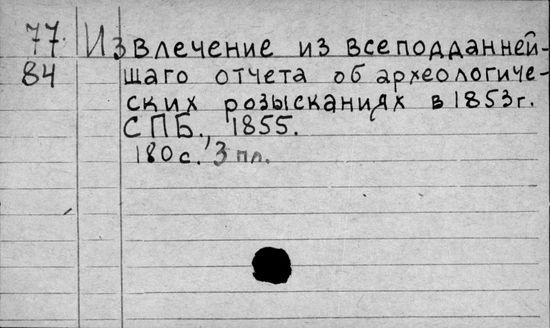 77. Извлечение из всеподданней-
84 шаго отчета об археологиче-
ских розысканиях в 1853г.
СПБ., 1855.
180 с. 3 пл.